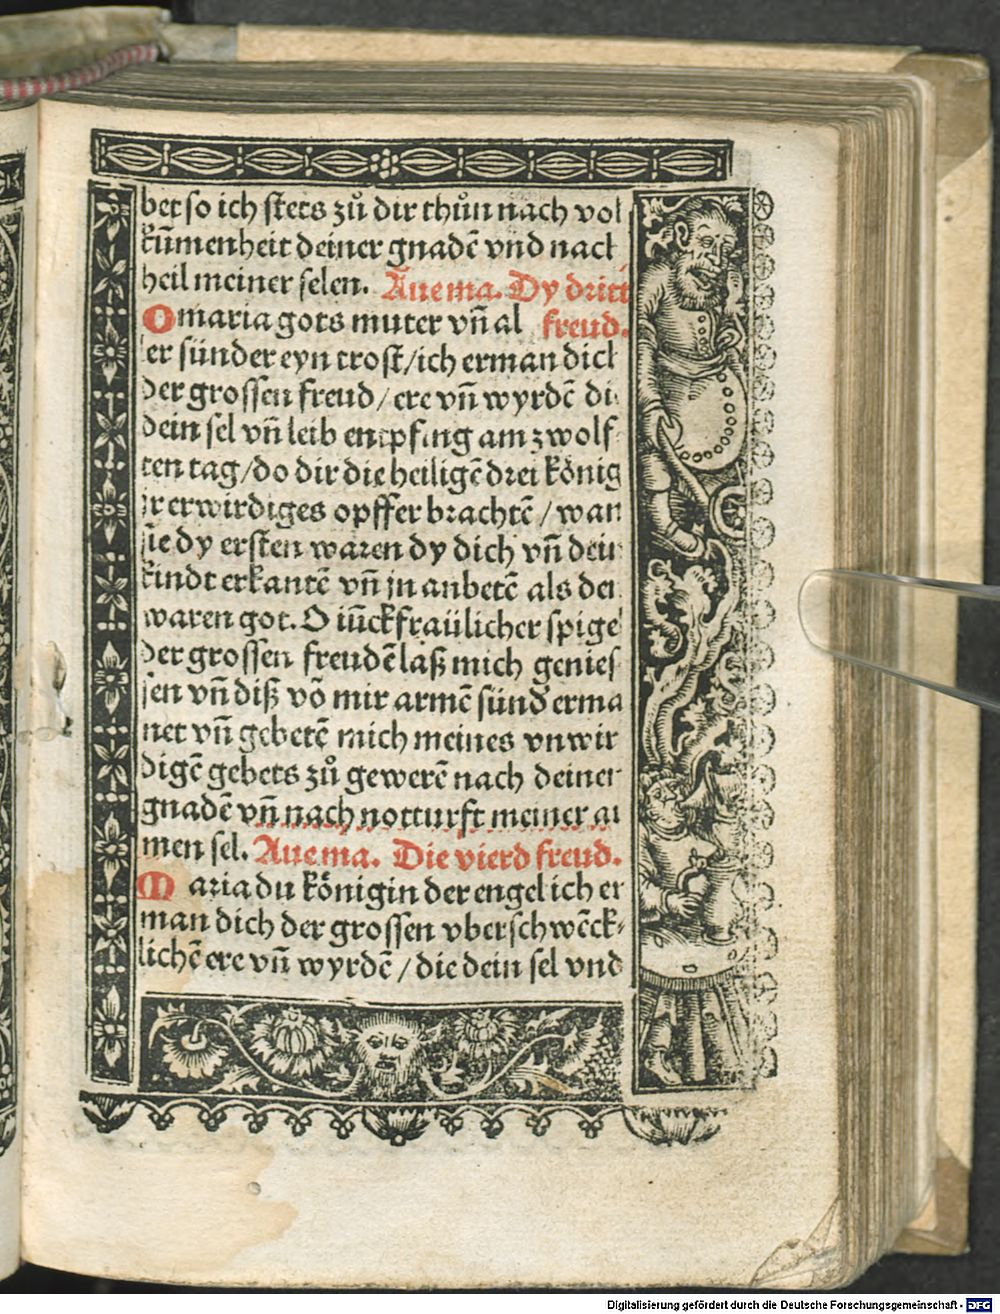 bet so ich stets zů dir thůn nach vol
kūmenheit deiner gnadē vnd nach
heil meiner selen. Aue ma. Dy dritt
O maria gots muter vñ al freud.
ler sünder eyn trost/ich erman dich
der grossen freud/ere vñ wyrdē die
dein sel vñ leib entpfing am zwolf-
ten tag/do dir die heiligē drei kőnig
jr erwirdiges opffer brachtē/wan
sie dy ersten waren dy dich vñ dein
kindt erkantē vñ jn anbetē als den
waren got. O iūckfraülicher spigel
der grossen freudē laß mich genies
sen vñ diß võ mir armē sünd erma
net vñ gebetē mich meines vnwir
digē gebets zů gewerē nach deiner
gnadē vñ nach notturft meiner ar
men sel. Aue ma. Die vierd freud.
Maria du kőnigin der engel ich er
man dich der grossen vberschwēck-
lichē ere vñ wyrdē/die dein sel vnd
Digitalisierung gefördert durch die Deutsche Forschungsgemeinschaft - DFG